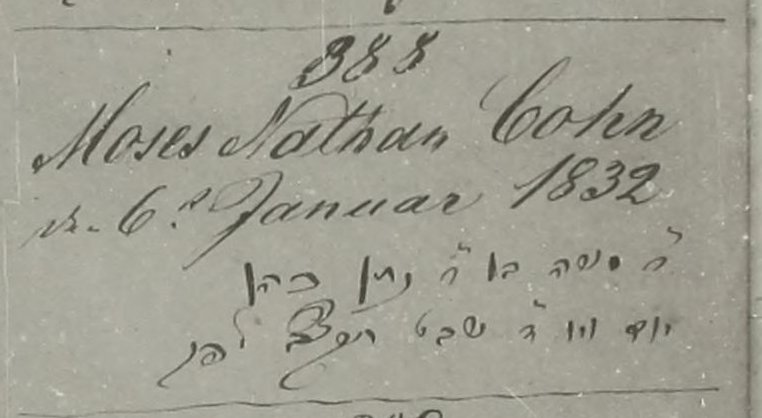 388
Moses Nathan Cohn
d. 6ᵗ Januar 1832
ר׳ משה בן ר׳ נתן כהן
יום ויו ד׳ שבט תקצב לפק